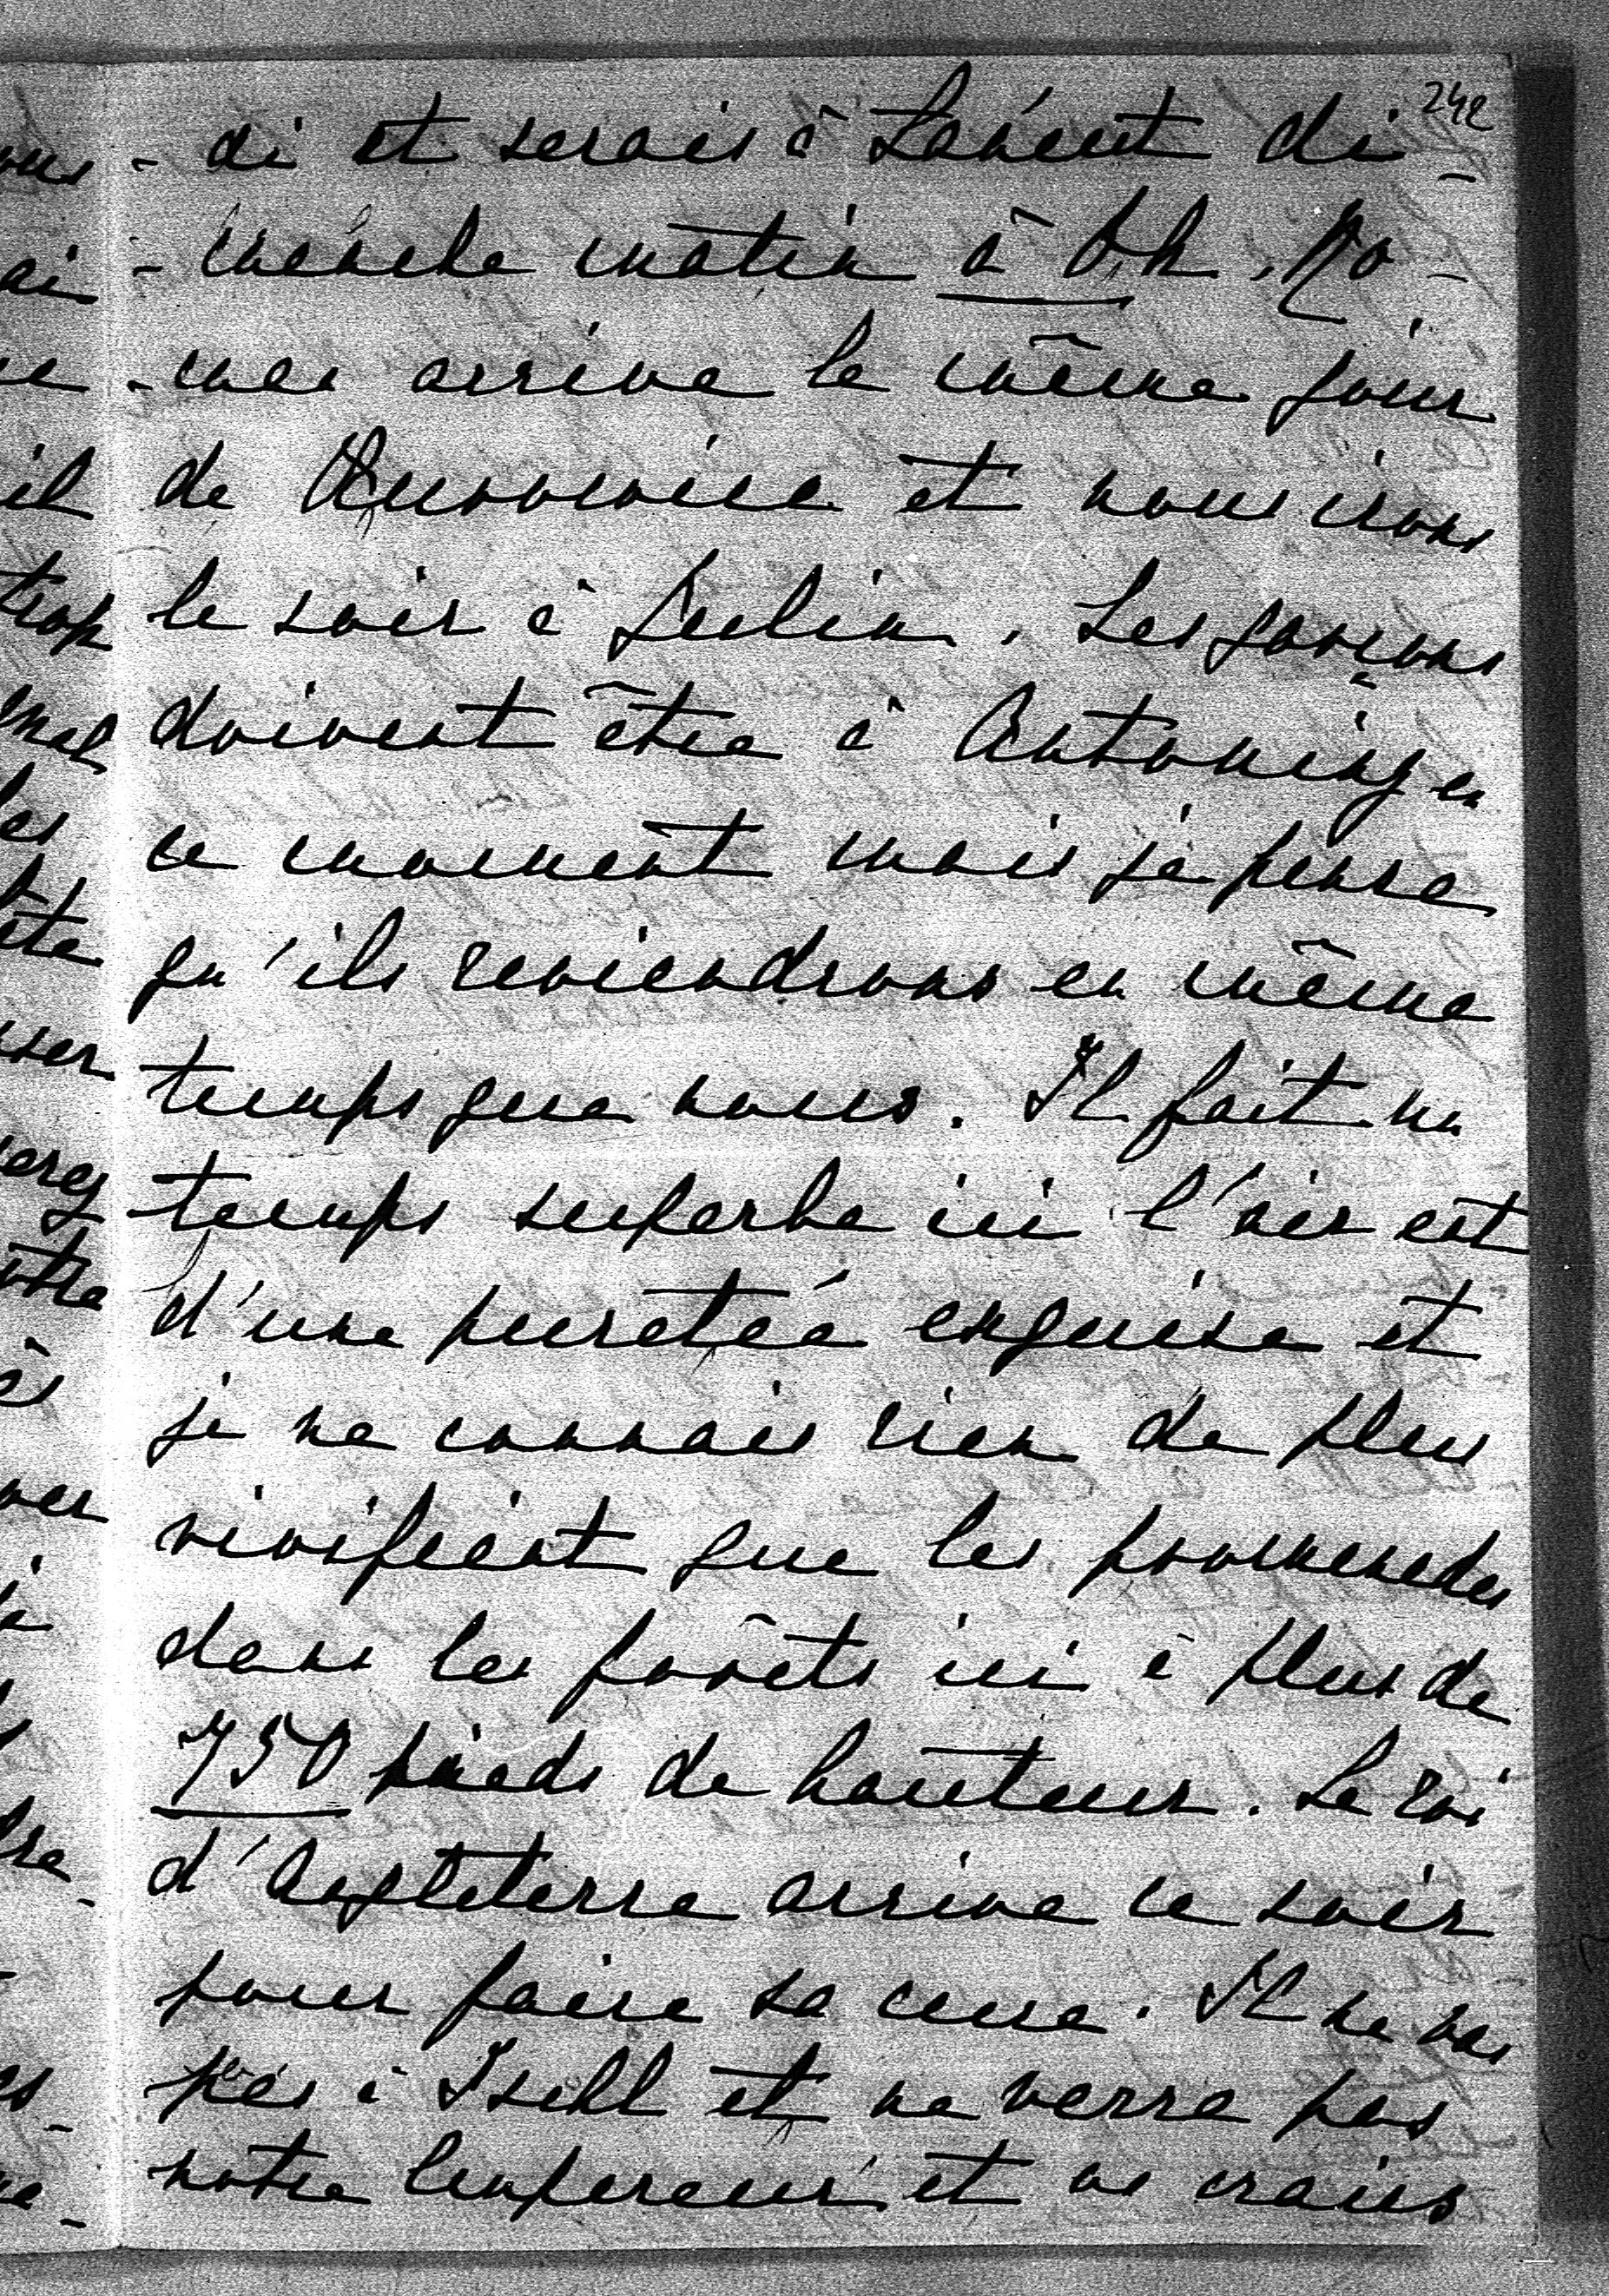 242
- di et serais à Lańcut di -
- manche matin à 6h. Ro -
- man arrive le même jour
de Roumanie et nous irons
le soir à Julin. Les garçons
doivent être à Antoniny en
ce moment mais je pense
qu'ils reviendrons en même
temps que nous. Il fait un
temps superbe ici l'air est
d'une puretée exquise et
je ne connais rien de plus
vivifiant que les promenades
dans les forêts ici à plus de
750 pieds de hauteur. Le roi
d'Angleterre arrive ce soir
pour faire sa cure. Il ne va
pas à Ischl et ne verra pas
notre Empereur et on crains